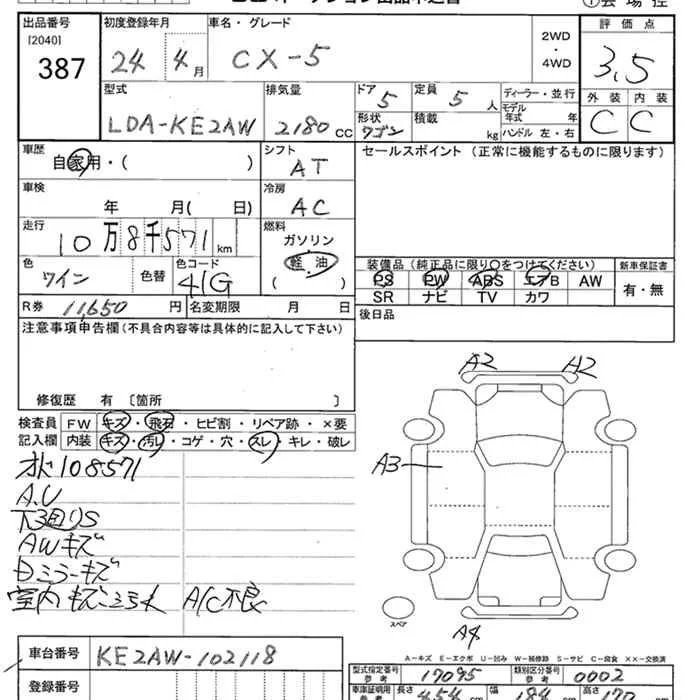 出品番号 初度登録年月 車名・グレード 評価点
[2040]
387 24 4月 CX-5 2WD・4WD 3.5
型式 排気量 ドア 定員 ディーラー・並行 外装 内装
LDA-KE2AW 2180 CC 5 5人 モデル年式 年 C C
形状 ワゴン 積載 kg ハンドル 左・右
車歴 自家用・( ) シフト AT セールスポイント (正常に機能するものに限ります)
車検 年 月( 日) 冷房 AC
走行 10万8千571km 燃料 ガソリン 軽油 ( )
色 ワイン 色替 色コード 41G
装備品(純正品に限り○をつけてください) 新車保証書
PS PW ABS エアB AW 有・無
SR ナビ TV カワ
R券 11,650円 名変期限 月 日 後日品
注意事項申告欄(不具合内容等は具体的に記入して下さい)
修復歴 有 〔箇所 〕
検査員 FW キズ・飛石・ヒビ割・リペア跡・×要
記入欄 内装 キズ・汚れ・コゲ・穴・スレ・キレ・破レ
A2 A2
A3
108571
A.U
下廻りS
AWキズ
ミラーキズ
室内キズ・ A/C不良
スペア
A4
A-キズ E-エクボ U-凹み W-補修跡 S-サビ C-腐食 XX-交換済
車台番号 KE2AW-102118
型式指定番号 参考 17095 類別区分番号 参考 0002
登録番号 長さ 幅 高さ